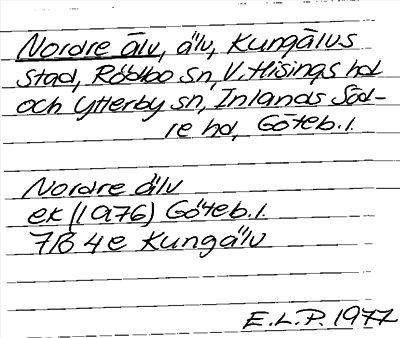 Nordre älv, älv, Kungälvs
stad, Rödbo sn, V. Hisings hd
och Ytterby sn, Inlands Söd-
re hd, Göteb. l.
Nordre älv
ek (1976) Göteb. l.
7B 4e Kungälv
E.L.P. 1977